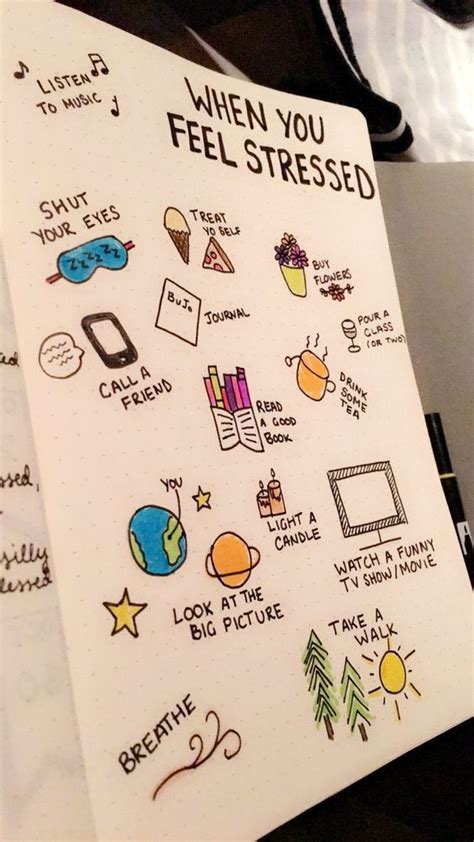 LISTEN
TO MUSIC
WHEN YOU
FEEL STRESSED
SHUT
YOUR EYES
ZZZZZ
TREAT
YO SELF
BUY
FLOWERS
BUJO
JOURNAL
POUR A
GLASS
(OR TWO)
CALL A
FRIEND
DRINK
SOME
TEA
READ
A GOOD
BOOK
YOU
LIGHT A
CANDLE
WATCH A FUNNY
TV SHOW/MOVIE
LOOK AT THE
BIG PICTURE
TAKE A
WALK
BREATHE
silly